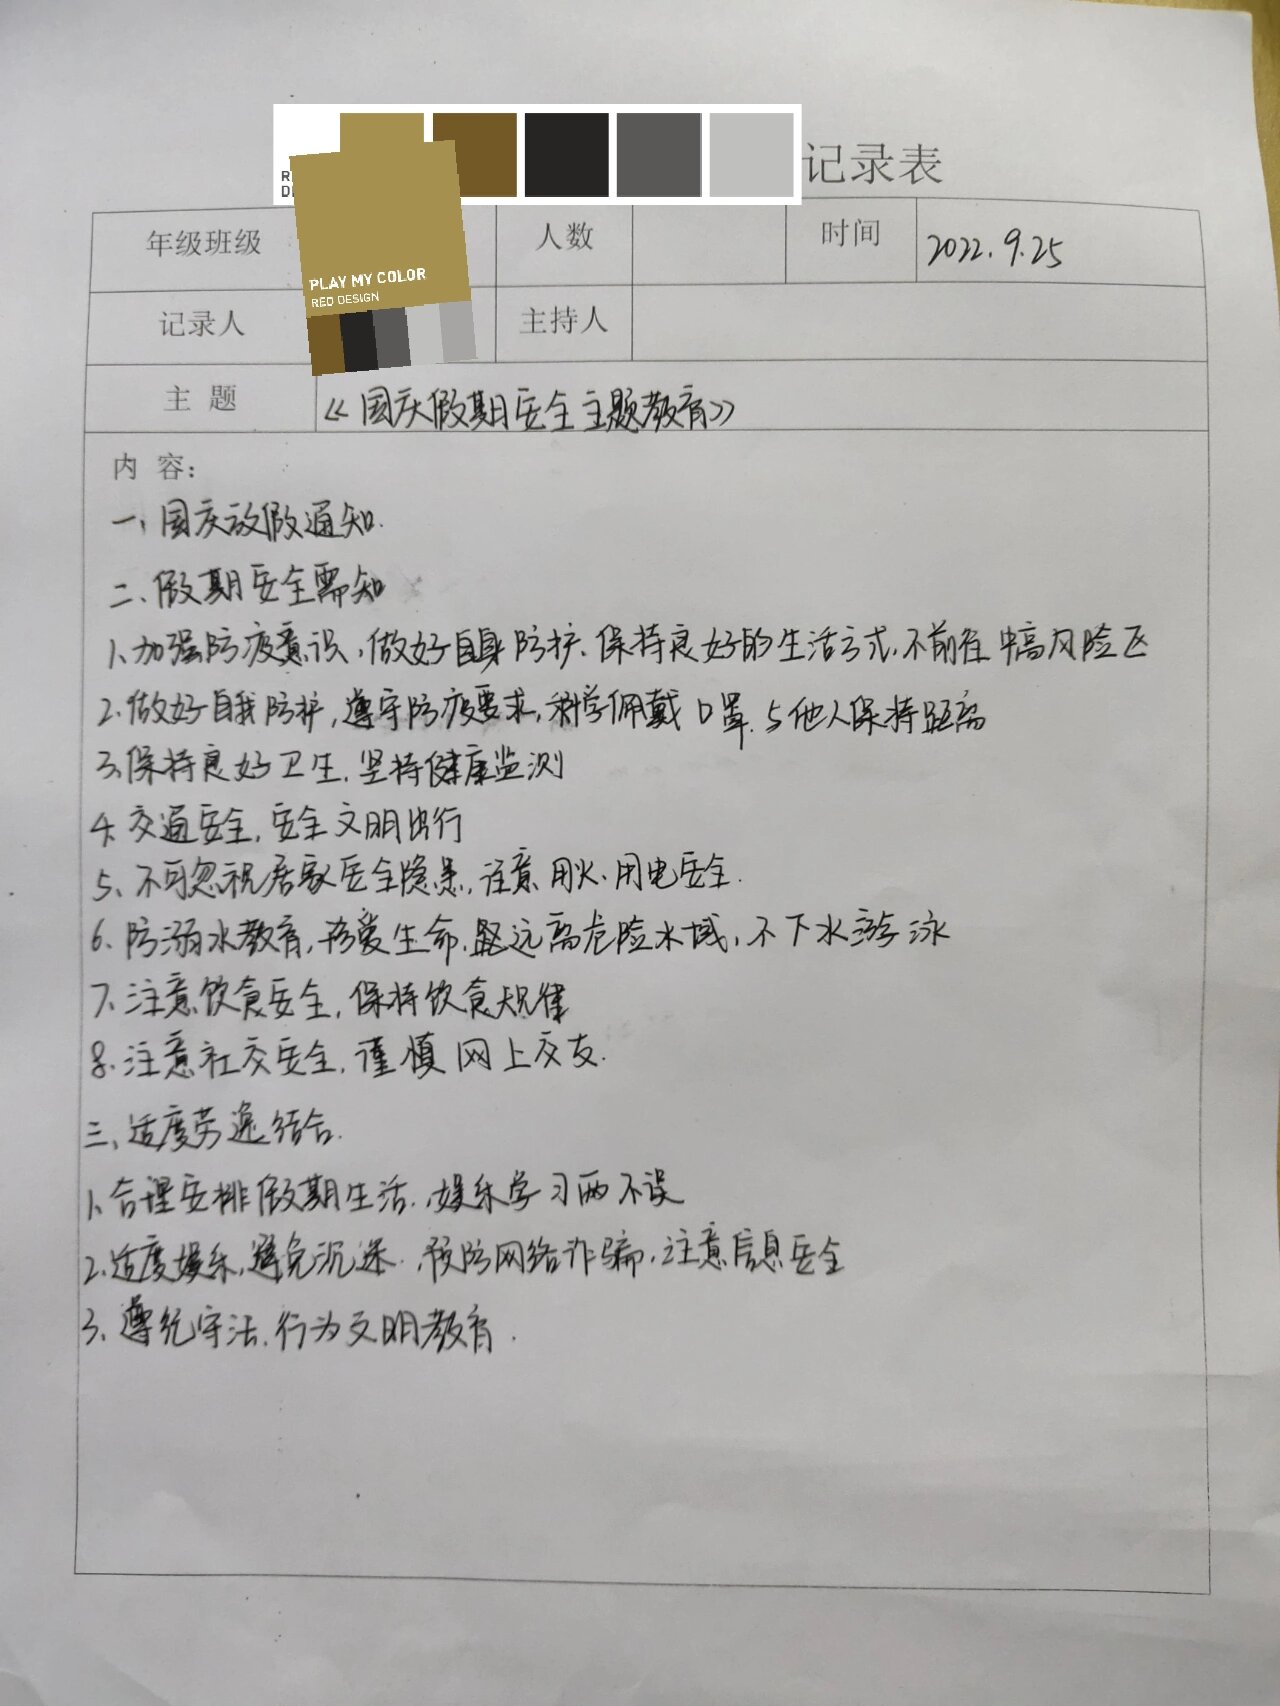 记录表
RE
DE
PLAY MY COLOR
RED DESIGN
年级班级 人数 时间 2022.9.25
记录人 主持人
主 题 《国庆假期安全主题教育》
内 容:
一、国庆放假通知.
二、假期安全需知
1、加强防疫意识,做好自身防护、保持良好的生活方式,不前往中高风险区
2.做好自我防护,遵守防疫要求,科学佩戴口罩.与他人保持距离
3、保持良好卫生,坚持健康监测
4、交通安全,安全文明出行
5、不可忽视居家安全隐患,注意用火、用电安全.
6、防溺水教育,珍爱生命,远离危险水域,不下水游泳
7、注意饮食安全,保持饮食规律
8.注意社交安全,谨慎网上交友.
三、适度劳逸结合.
1、合理安排假期生活.,娱乐学习两不误
2.适度娱乐,避免沉迷.,预防网络诈骗,注意信息安全
3、遵纪守法.行为文明教育.